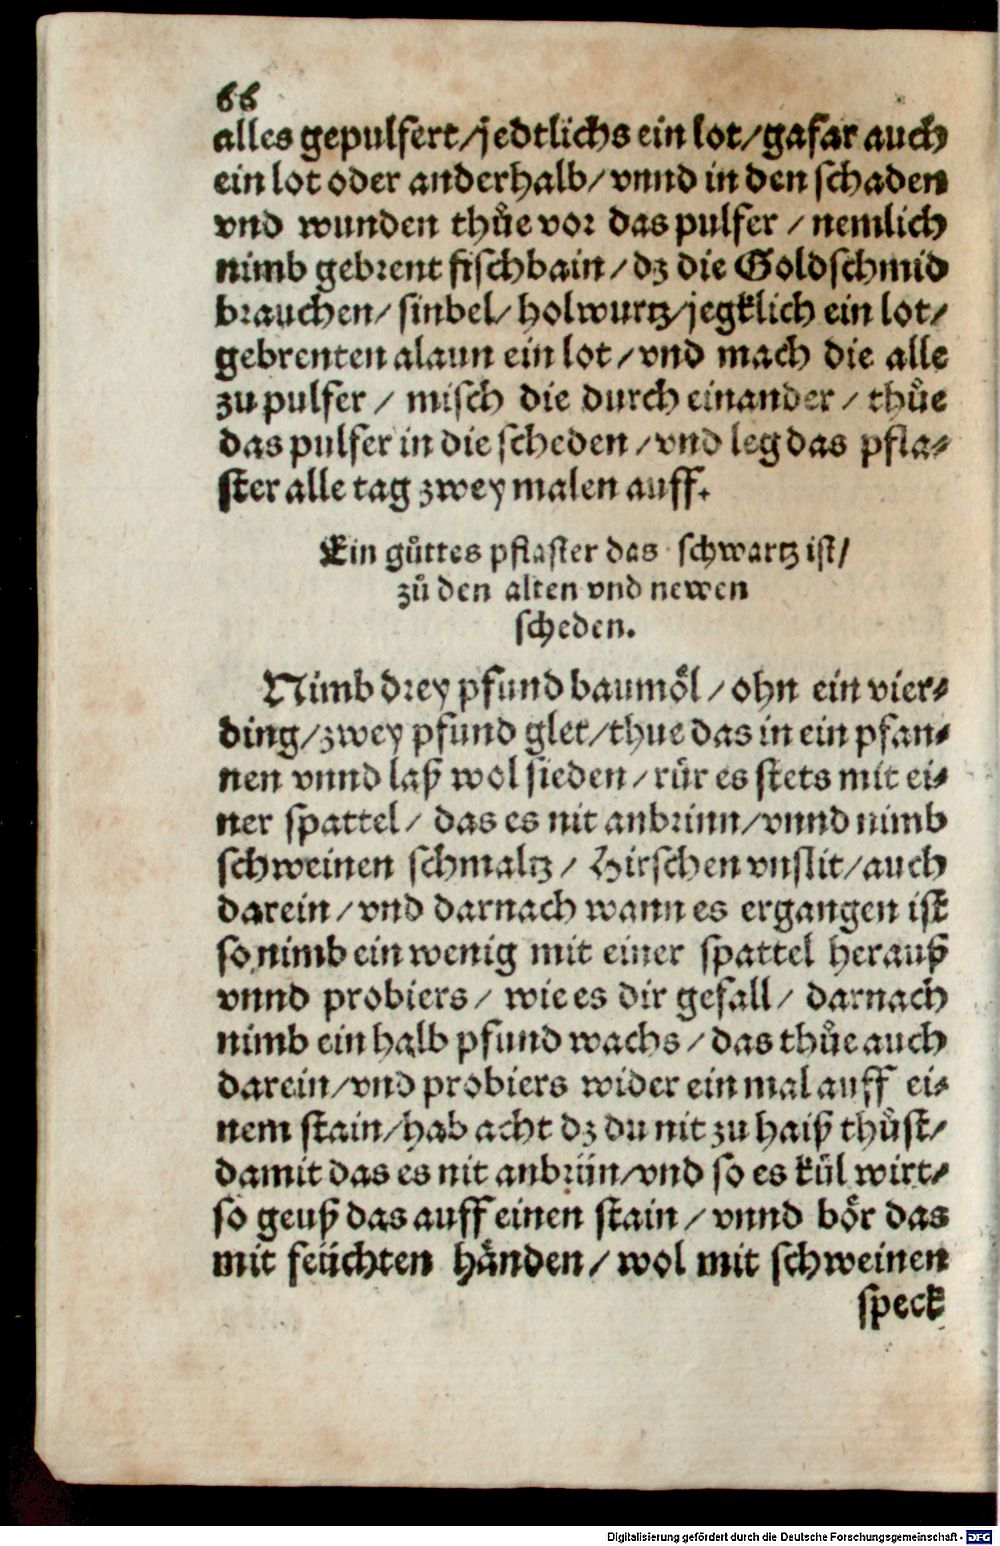 66
alles gepulfert/jedtlichs ein lot/gafar auch
ein lot oder anderhalb/vnnd in den schaden
vnd wunden thůe vor das pulfer / nemlich
nimb gebrent fischbain/dz die Goldschmid
brauchen/ sinbel/ holwurtz/jegklich ein lot/
gebrenten alaun ein lot/vnd mach die alle
zu pulfer/ misch die durch einander/ thůe
das pulfer in die scheden/vnd leg das pfla-
ster alle tag zwey malen auff.
Ein gůttes pflaster das schwartz ist/
zů den alten vnd newen
scheden.
Nimb drey pfund baumöl/ ohn ein vier-
ding/zwey pfund glet/thue das in ein pfan-
nen vnnd laß wol sieden/rür es stets mit ei-
ner spattel/ das es nit anbrinn/vnnd nimb
schweinen schmaltz/ Hirschen vnslit/auch
darein/vnd darnach wann es ergangen ist
so nimb ein wenig mit einer spattel herauß
vnnd probiers/ wie es dir gefall/ darnach
nimb ein halb pfund wachs/das thůe auch
darein/vnd probiers wider ein mal auff ei-
nem stain/hab acht dz du nit zu haiß thůst/
damit das es nit anbrün/vnd so es kül wirt/
so geuß das auff einen stain/vnnd bör das
mit feüchten händen/wol mit schweinen
speck
Digitalisierung gefördert durch die Deutsche Forschungsgemeinschaft - DFG